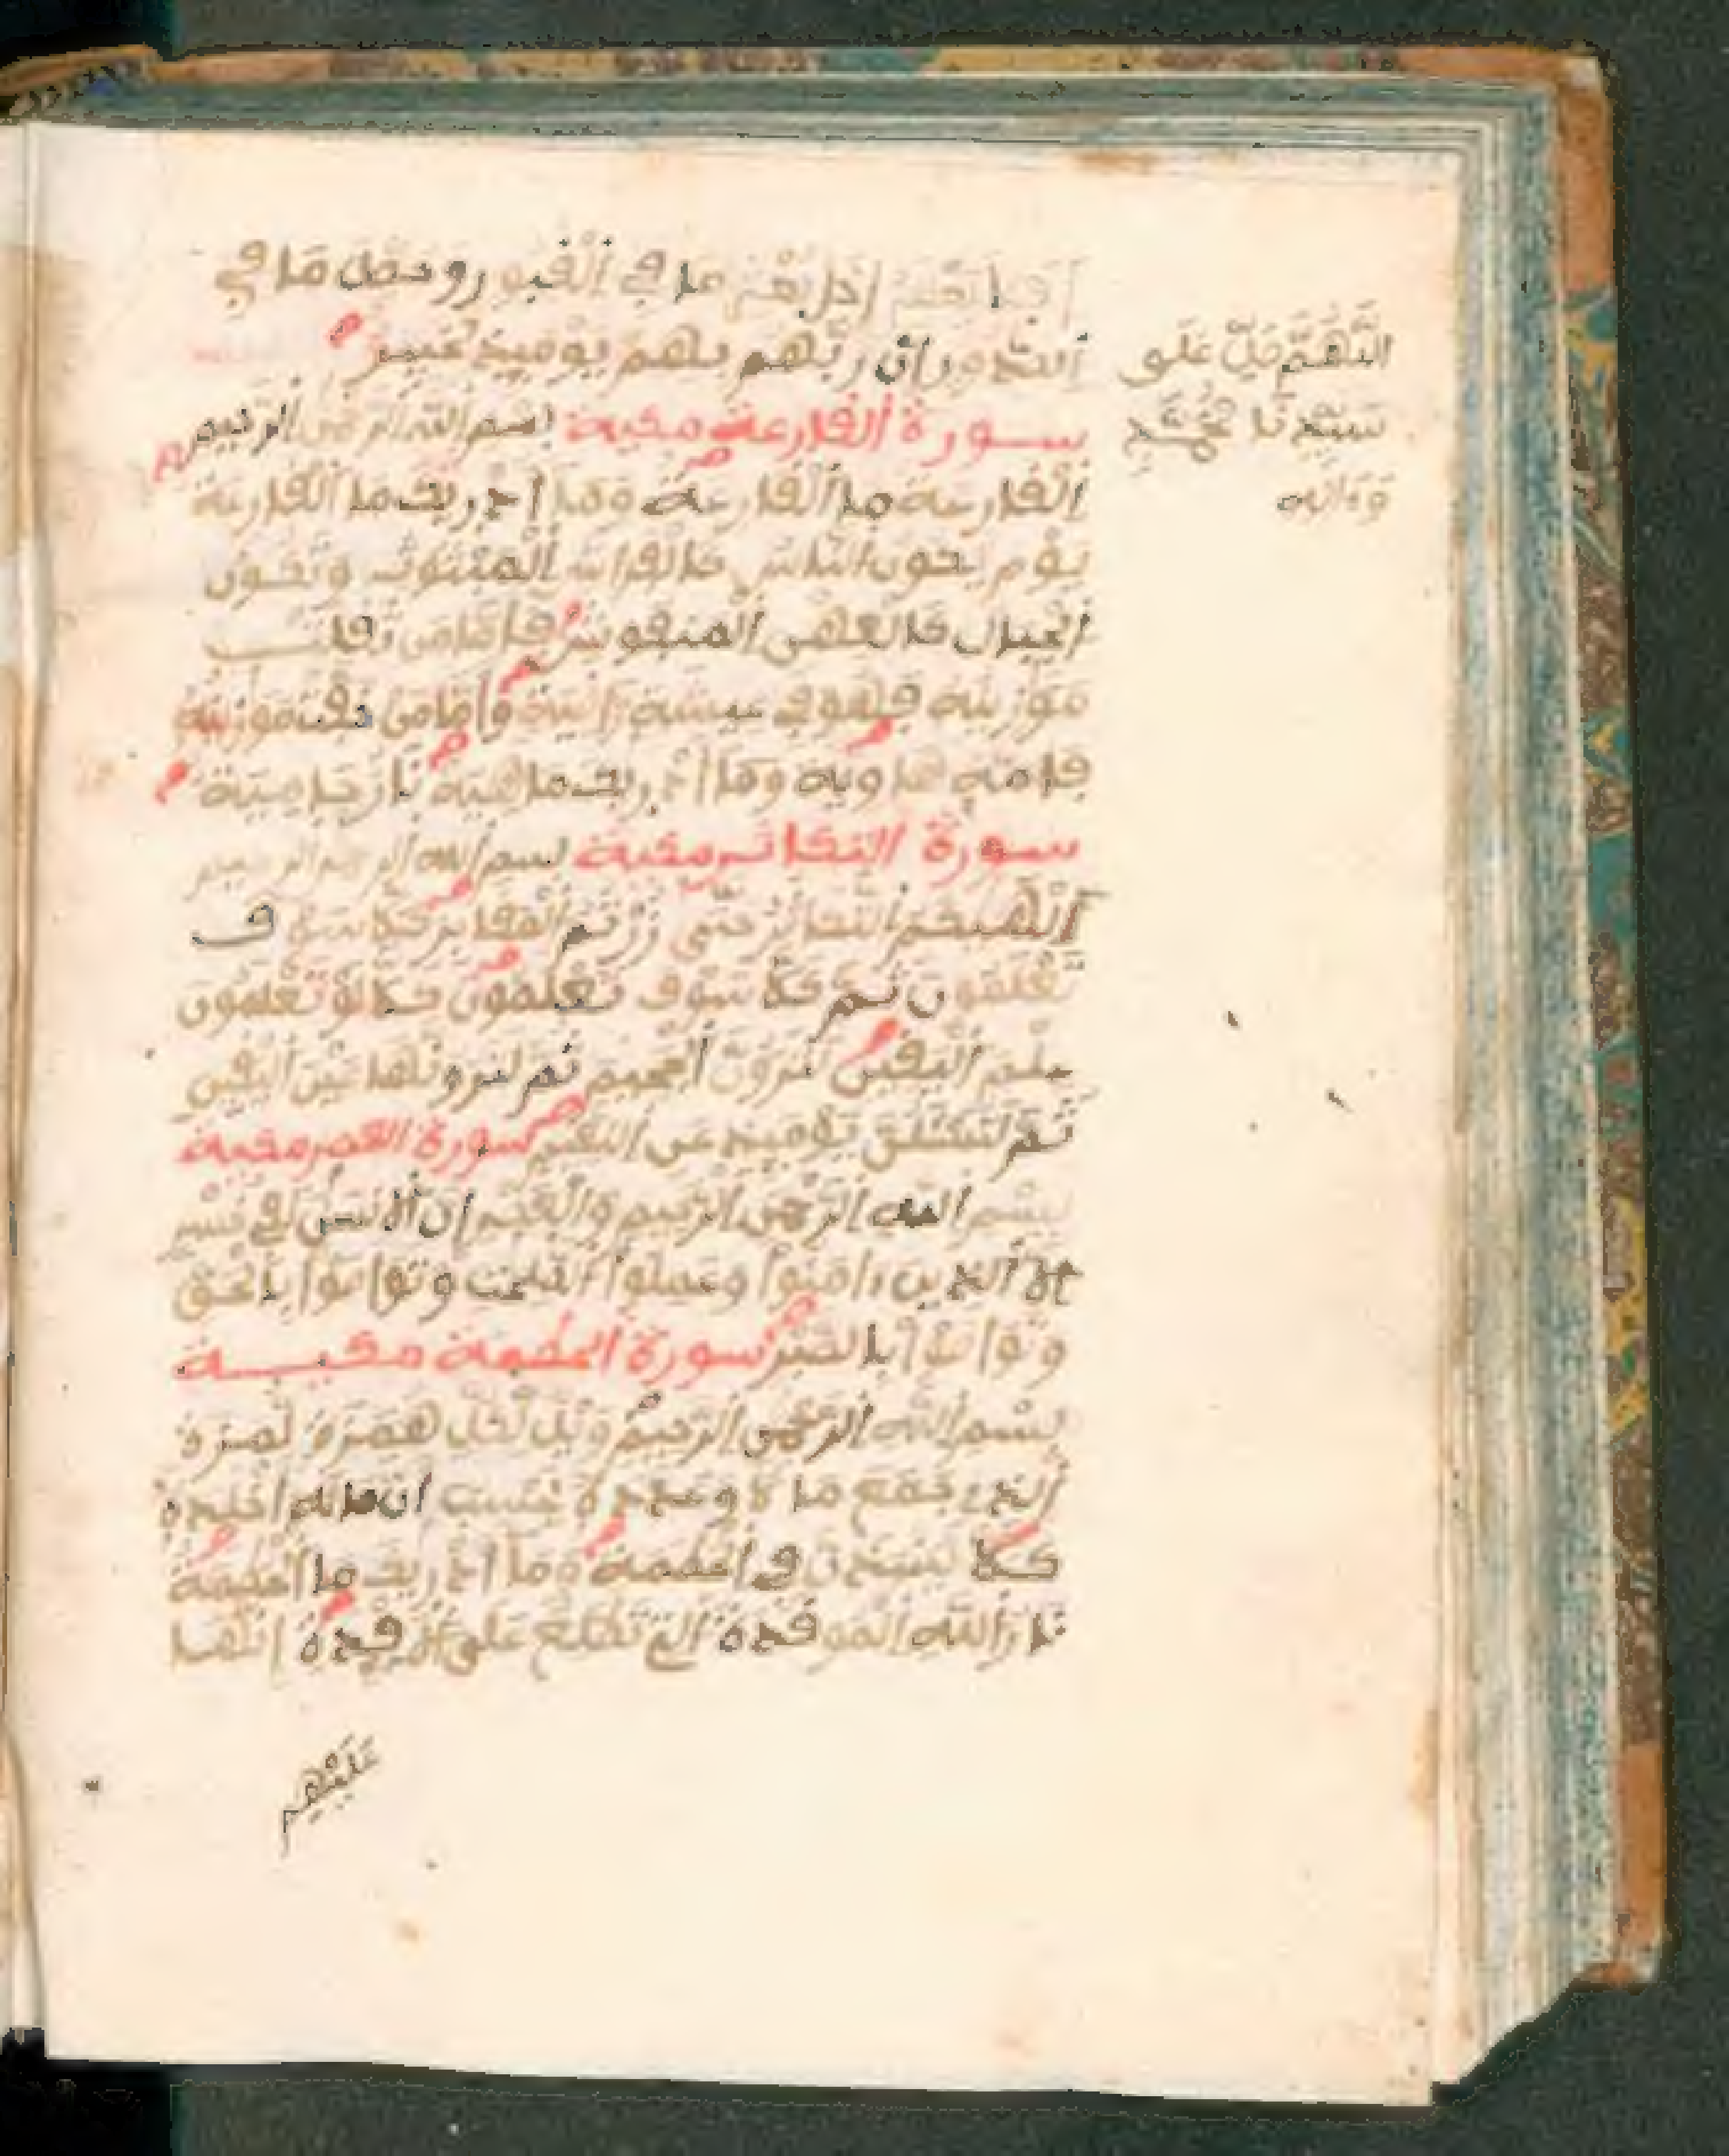 أفلا يعلم إذا بعثر ما في القبور وحصل ما في
الصدور إن ربهم بهم يوميذ لخبير
سورة القارعة مكية بسم الله الرحمن الرحيم
القارعة ما القارعة وما أدريك ما القارعة
يوم يكون الناس كالفراش المبثوث وتكون
الجبال كالعهن المنفوش فأما من ثقلت
موزينه فهو في عيشة راضية وأما من خفت موزينه
فأمه هاوية وما أدريك ما هية نار حامية
سورة التكاثر مكية بسم الله الرحمن الرحيم
ألهيكم التكاثر حتى زرتم المقابر كلا سوف
تعلمون ثم كلا سوف تعلمون كلا لو تعلمون
علم اليقين لترون الجحيم ثم لترونها عين اليقين
ثم لتسئلن يوميذ عن النعيم سورة العصر مكية
بسم الله الرحمن الرحيم والعصر إن الانسن لفي خسر
إلا الذين ءامنوا وعملوا الصلحت وتواصوا بالحق
وتواصوا بالصبر سورة الحطمة مكية
بسم الله الرحمن الرحيم ويل لكل همزة لمزة
الذي جمع مالا وعدده يحسب أن ماله أخلده
كلا لينبذن في الحطمة وما أدريك ما الحطمة
نار الله الموقدة التي تطلع على الأفدة إنها
عليهم
اللهم صل على
سيدنا محمد
وءاله